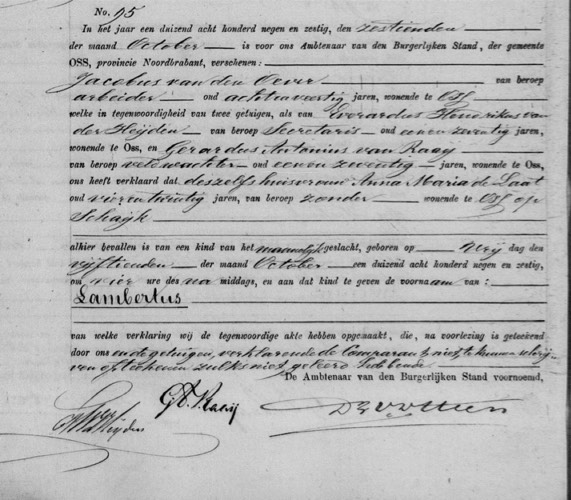 No. 95
In het jaar een duizend acht honderd negen en zestig, den zestienden
der maand October is voor ons Ambtenaar van den Burgerlijken Stand, der gemeente
OSS, provincie Noordbrabant, verschenen:
Jacobus van den Oever van beroep
arbeider oud achtenveertig jaren, wonende te Oss
welke in tegenwoordigheid van twee getuigen, als van Everardus Henrikus van
der Heijden van beroep Secretaris oud eenenzeventig jaren,
wonende te Oss, en Gerardus Antonius van Raaij
van beroep veldwachter oud eenenzeventig jaren, wonende te Oss,
ons heeft verklaard dat deszelfs huisvrouw Anna Maria de Laat
oud vierentwintig jaren, van beroep zonder wonende te Oss op
Schaijk
alhier bevallen is van een kind van het mannelijk geslacht, geboren op Vrij dag den
vijftienden der maand October een duizend acht honderd negen en zestig,
om vier ure des na middags, en aan dat kind te geven de voornaam van:
Lambertus
van welke verklaring wij de tegenwoordige akte hebben opgemaakt, die, na voorlezing is geteekend
door ons en de getuigen, verklarende de Comparant niet te kunnen schrij-
ven of teekenen zulks niet geleerd hebbende
De Ambtenaar van den Burgerlijken Stand voornoemd,
G A V Raaij
vd Heijden